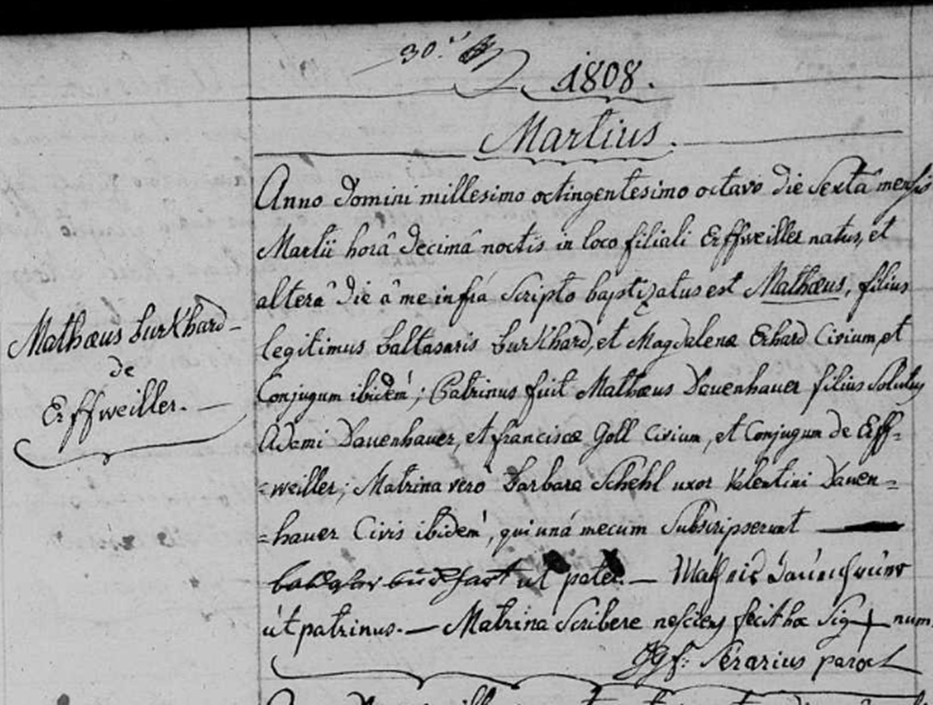 30.
1808.
Martius.
Anno Domini millesimo octingentesimo octavo die Sextâ mensis
Martii horâ Decimâ noctis in loco filiali Erffweiller natus, et
alterâ Die â me infra Scripto baptizatus est Mathæus, filius
legitimus Baltasaris Burkhard, et Magdalenæ Erhard Civium, et
Conjugum ibidem; Patrinus fuit Mathæus Dauenhauer filius Solutus
Adami Dauenhauer, et franciscæ Goll Civium, et Conjugum de Erff=
=weiller; Matrina vero Barbara Schehl uxor Valentini Dauen=
=hauer Civis ibidem, qui unâ mecum Subscripserunt —
ut pater. — Dauenhauer
ut patrinus. — Matrina Scribere nesciens fecit hoc Sig + num.
Serarius paroch
Mathæus Burkhard
de
Erffweiller. —